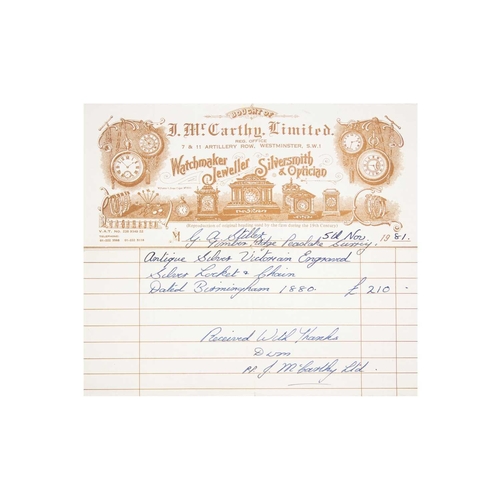 BOUGHT OF
J. McCarthy, Limited.
REG. OFFICE
7 & 11 ARTILLERY ROW, WESTMINSTER, S.W.1
Watchmaker Jeweller Silversmith & Optician
M G. A. Stiller 5th Nov. 1981.
Timber Ridge Peaslake Surrey.
Antique Silver Victorian Engraved
Silver Locket & Chain
Dated Birmingham 1880. £ 210 -
Received With Thanks
pp. J. McCarthy Ltd.